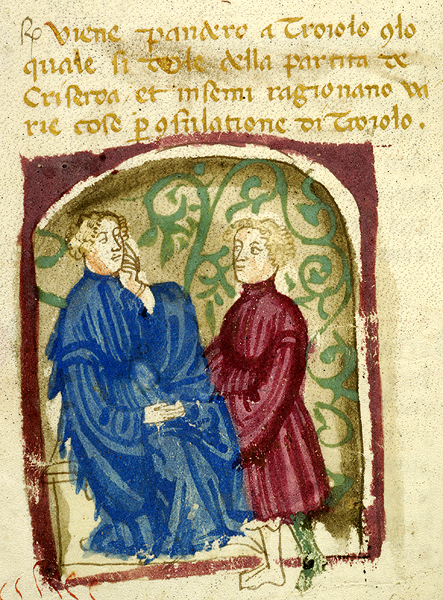 Viene pandaro a Troiolo 9lo
quale si dole della partita de
Criseida et insemi ragionano va
rie cose p 9sulatione di Troiolo.